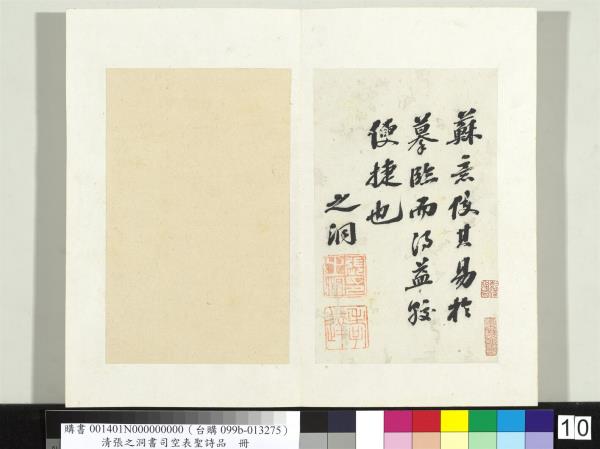 蘇意俊其易於
摹臨而得益較
便捷也
之洞
購書 001401N000000000 (台購 099b-013275)
清張之洞書司空表聖詩品 冊
10